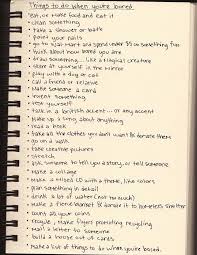 Things to do when you're bored
• Eat, or make food and eat it
• clean something
• take a shower or bath
• paint your nails
• go to wal-mart and spend under $5 on something fun
• think about how bored you are
• draw something... like a magical creature
• stare at yourself in the mirror
• play with a dog or cat
• call a friend or relative
• read a book
• talk in a british accent... or any accent
• make up a song about anything
• cook
• take all the clothes you don't want & donate them
• go on a walk
• take creative pictures
• stretch
• ask someone to tell you a story, or tell someone
• make a collage
• make a mixed CD with a theme, like colors
• plan something in detail
• drink a lot of water (not too much)
• make a fleece blanket & donate it to homeless shelter
• count all your coins
• recycle, make flyers promoting recycling
• mail a letter to someone
• build a house out of cards
• make a list of things to do when you're bored.